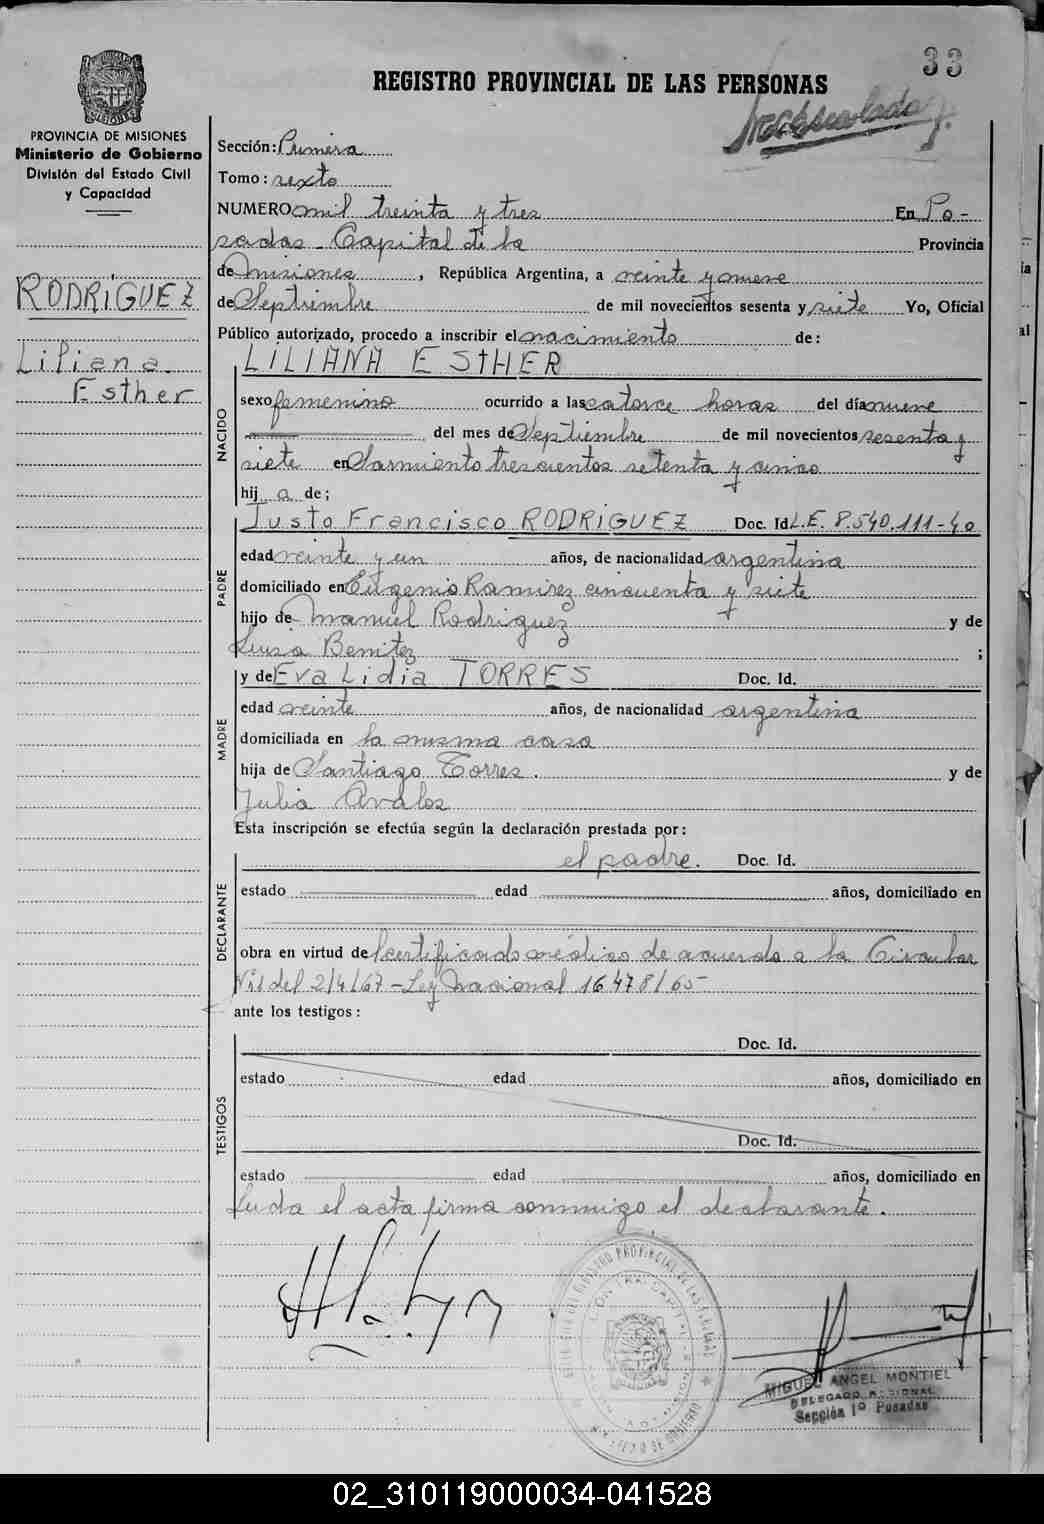 33
REGISTRO PROVINCIAL DE LAS PERSONAS
PROVINCIA DE MISIONES
Ministerio de Gobierno
División del Estado Civil
y Capacidad
RODRIGUEZ
Liliana
Esther
Sección: Primera
Tomo: sexto
NUMERO mil treinta y tres En Po-
sadas Capital de la Provincia
de Misiones, República Argentina, a veinte y nueve
de Septiembre de mil novecientos sesenta y siete Yo, Oficial
Público autorizado, procedo a inscribir el nacimiento de:
LILIANA ESTHER
NACIDO
sexo femenino ocurrido a las catorce horas del día nueve
del mes de Septiembre de mil novecientos sesenta y
siete en Sarmiento trescientos setenta y cinco
hij a de;
PADRE
Justo Francisco RODRIGUEZ Doc. Id. L.E. 8.540.111-40
edad veinte y un años, de nacionalidad argentina
domiciliado en Eugenio Ramirez cincuenta y siete
hijo de Manuel Rodriguez y de
Luisa Benitez ;
MADRE
y de Eva Lidia TORRES Doc. Id.
edad veinte años, de nacionalidad argentina
domiciliada en la misma casa
hija de Santiago Torres. y de
Julia Avalos
Esta inscripción se efectúa según la declaración prestada por:
DECLARANTE
el padre. Doc. Id.
estado edad años, domiciliado en
obra en virtud de certificado médico de acuerdo a la Circular
del 2/4/67 - Ley Nacional 16478/65
ante los testigos:
TESTIGOS
Doc. Id.
estado edad años, domiciliado en
Doc. Id.
estado edad años, domiciliado en
Leida el acta firma conmigo el declarante.
MIGUEL ANGEL MONTIEL
DELEGADO REGIONAL
Sección 1º Posadas
02_310119000034-041528